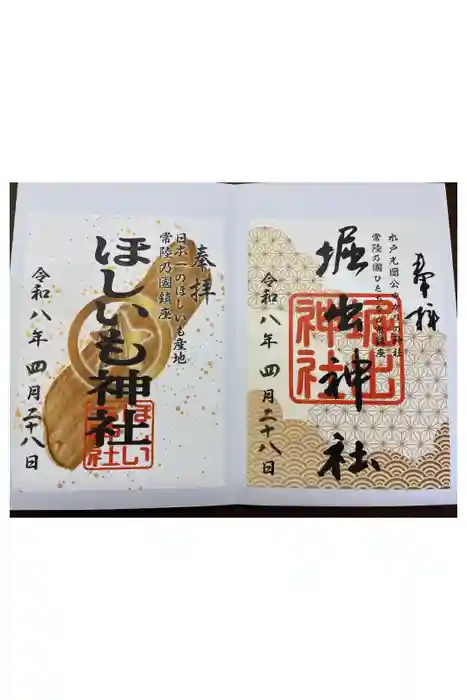 奉拝
水戸光圀公ゆかりの神社
常陸乃國
鎮座
堀出神社
堀出神社
令和八年 四月二十八日
奉拝
日本一のほしいも産地
常陸乃國鎮座
ほしいも神社
令和八年 四月二十八日